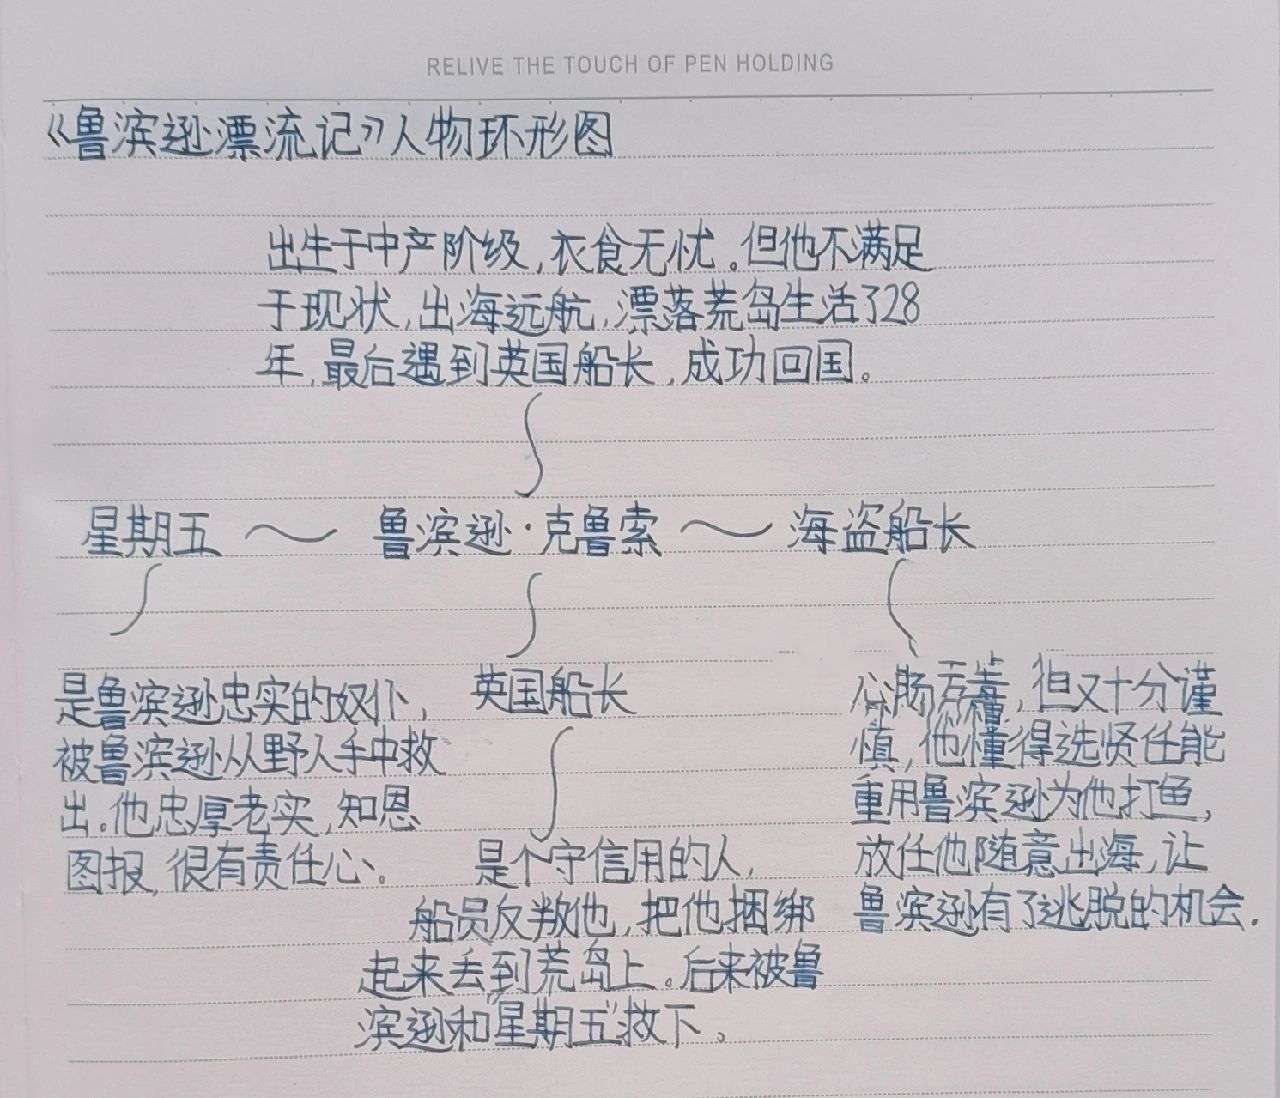 RELIVE THE TOUCH OF PEN HOLDING
《鲁滨逊漂流记》人物环形图
出生于中产阶级,衣食无忧。但他不满足
于现状,出海远航,漂落荒岛生活了28
年,最后遇到英国船长,成功回国。
星期五 ～ 鲁滨逊·克鲁索 ～ 海盗船长
是鲁滨逊忠实的奴仆,
被鲁滨逊从野人手中救
出。他忠厚老实,知恩
图报,很有责任心、
英国船长
是个守信用的人,
船员反叛他,把他捆绑
起来丢到荒岛上。后来被鲁
滨逊和"星期五"救下。
心肠歹毒,但又十分谨
慎,他懂得选贤任能
重用鲁滨逊为他打鱼,
放任他随意出海,让
鲁滨逊有了逃脱的机会.